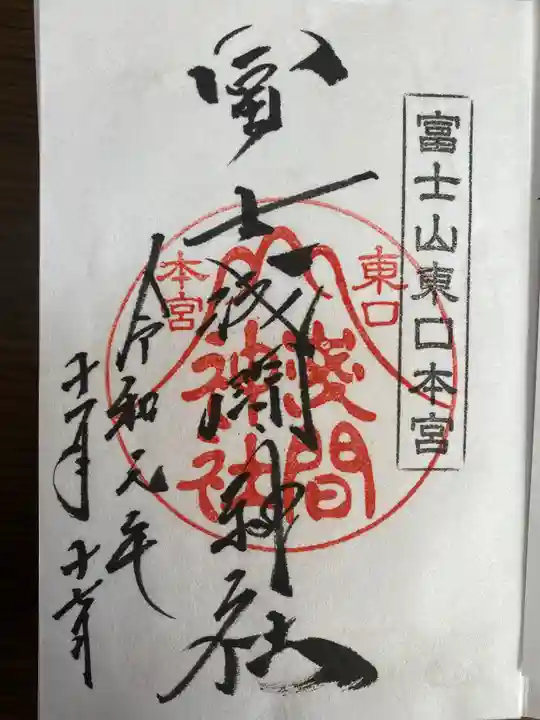 富士山東口本宮
冨士浅間神社
東口
本宮
淺間
神社
令和元年
十一月